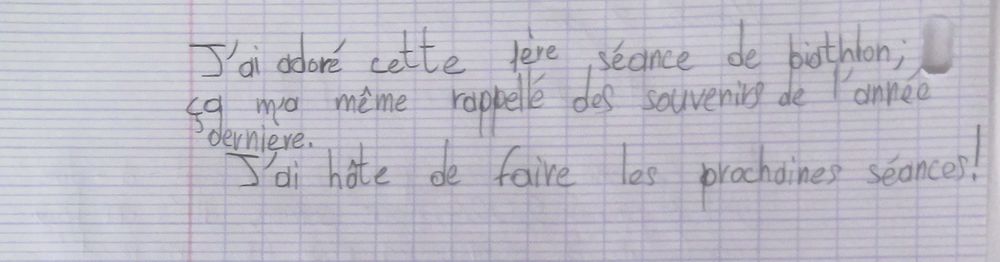 J'ai adoré cette 1ère séance de biathlon;
ça m'a même rappellé des souvenirs de l'année
dernière.
J'ai hâte de faire les prochaines séances!